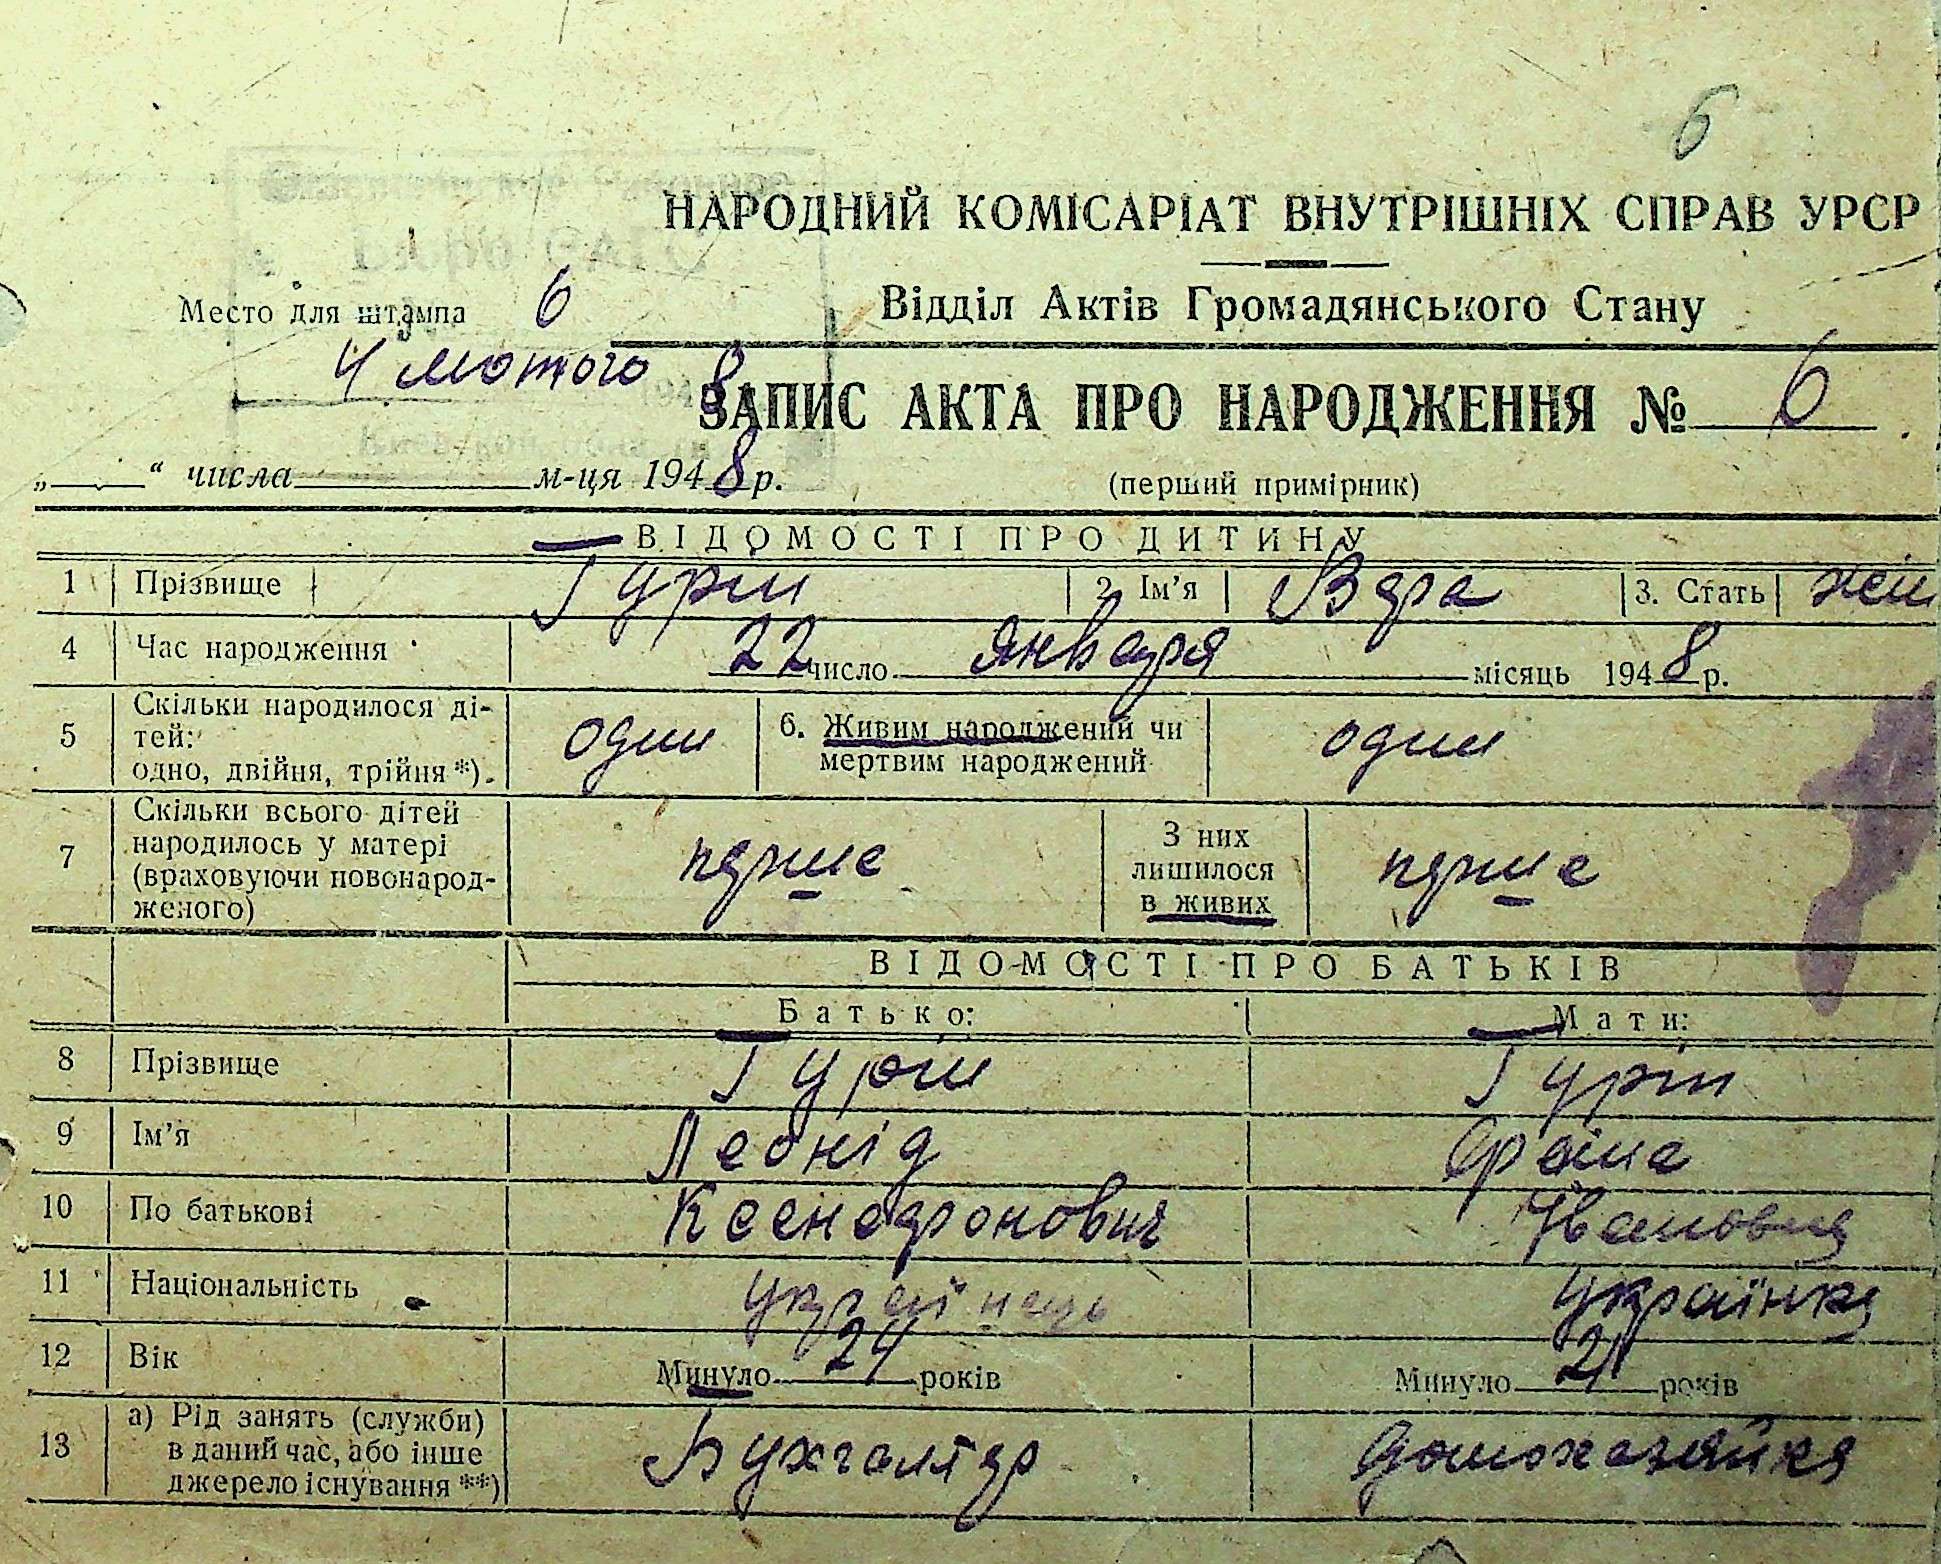 6
НАРОДНИЙ КОМІСАРІАТ ВНУТРІШНІХ СПРАВ УРСР
Бюро ЗАГС
Відділ Актів Громадянського Стану
Место для штампа 6
4 лютого 8
ЗАПИС АКТА ПРО НАРОДЖЕННЯ № 6
„ “ числа м-ця 1948 р.
(перший примірник)
ВІДОМОСТІ ПРО ДИТИНУ
1 Прізвище Гурін 2. Ім’я Вера 3. Стать жін
4 Час народження 22 число января місяць 1948 р.
5 Скільки народилося ді-
тей:
одно, двійня, трійня*). один 6. Живим народжений чи
мертвим народжений один
7 Скільки всього дітей
народилось у матері
(враховуючи новонарод-
женого) перше З них
лишилося
в живих перше
ВІДОМОСТІ ПРО БАТЬКІВ
Батько: Мати:
8 Прізвище Гурін Гурін
9 Ім’я Леонід
10 По батькові Ксенофонович Івановна
11 Національність українець українка
12 Вік Минуло 24 років Минуло 21 років
13 а) Рід занять (служби)
в даний час, або інше
джерело існування **) Бухгалтер домохазяйка